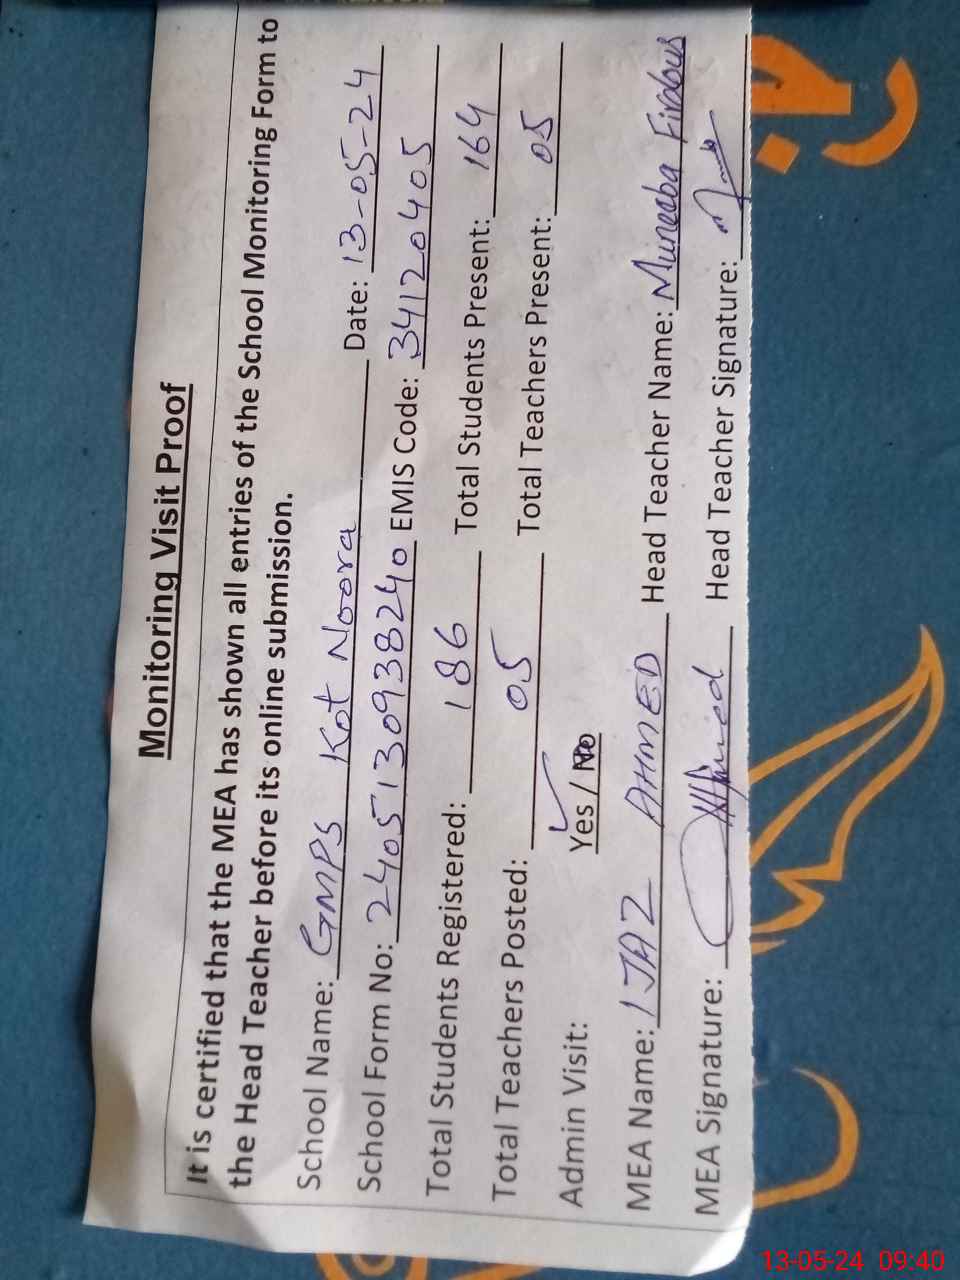 Monitoring Visit Proof
It is certified that the MEA has shown all entries of the School Monitoring Form to
the Head Teacher before its online submission.
School Name: GMPS Kot Noora Date: 13-05-24
School Form No: 2405130938240 EMIS Code: 34120405
Total Students Registered: 186 Total Students Present: 164
Total Teachers Posted: 05 Total Teachers Present: 05
Admin Visit: Yes / No
MEA Name: IJAZ AHMED Head Teacher Name: Muneeba Firdous
MEA Signature: Ahmed Head Teacher Signature:
13-05-24 09:40